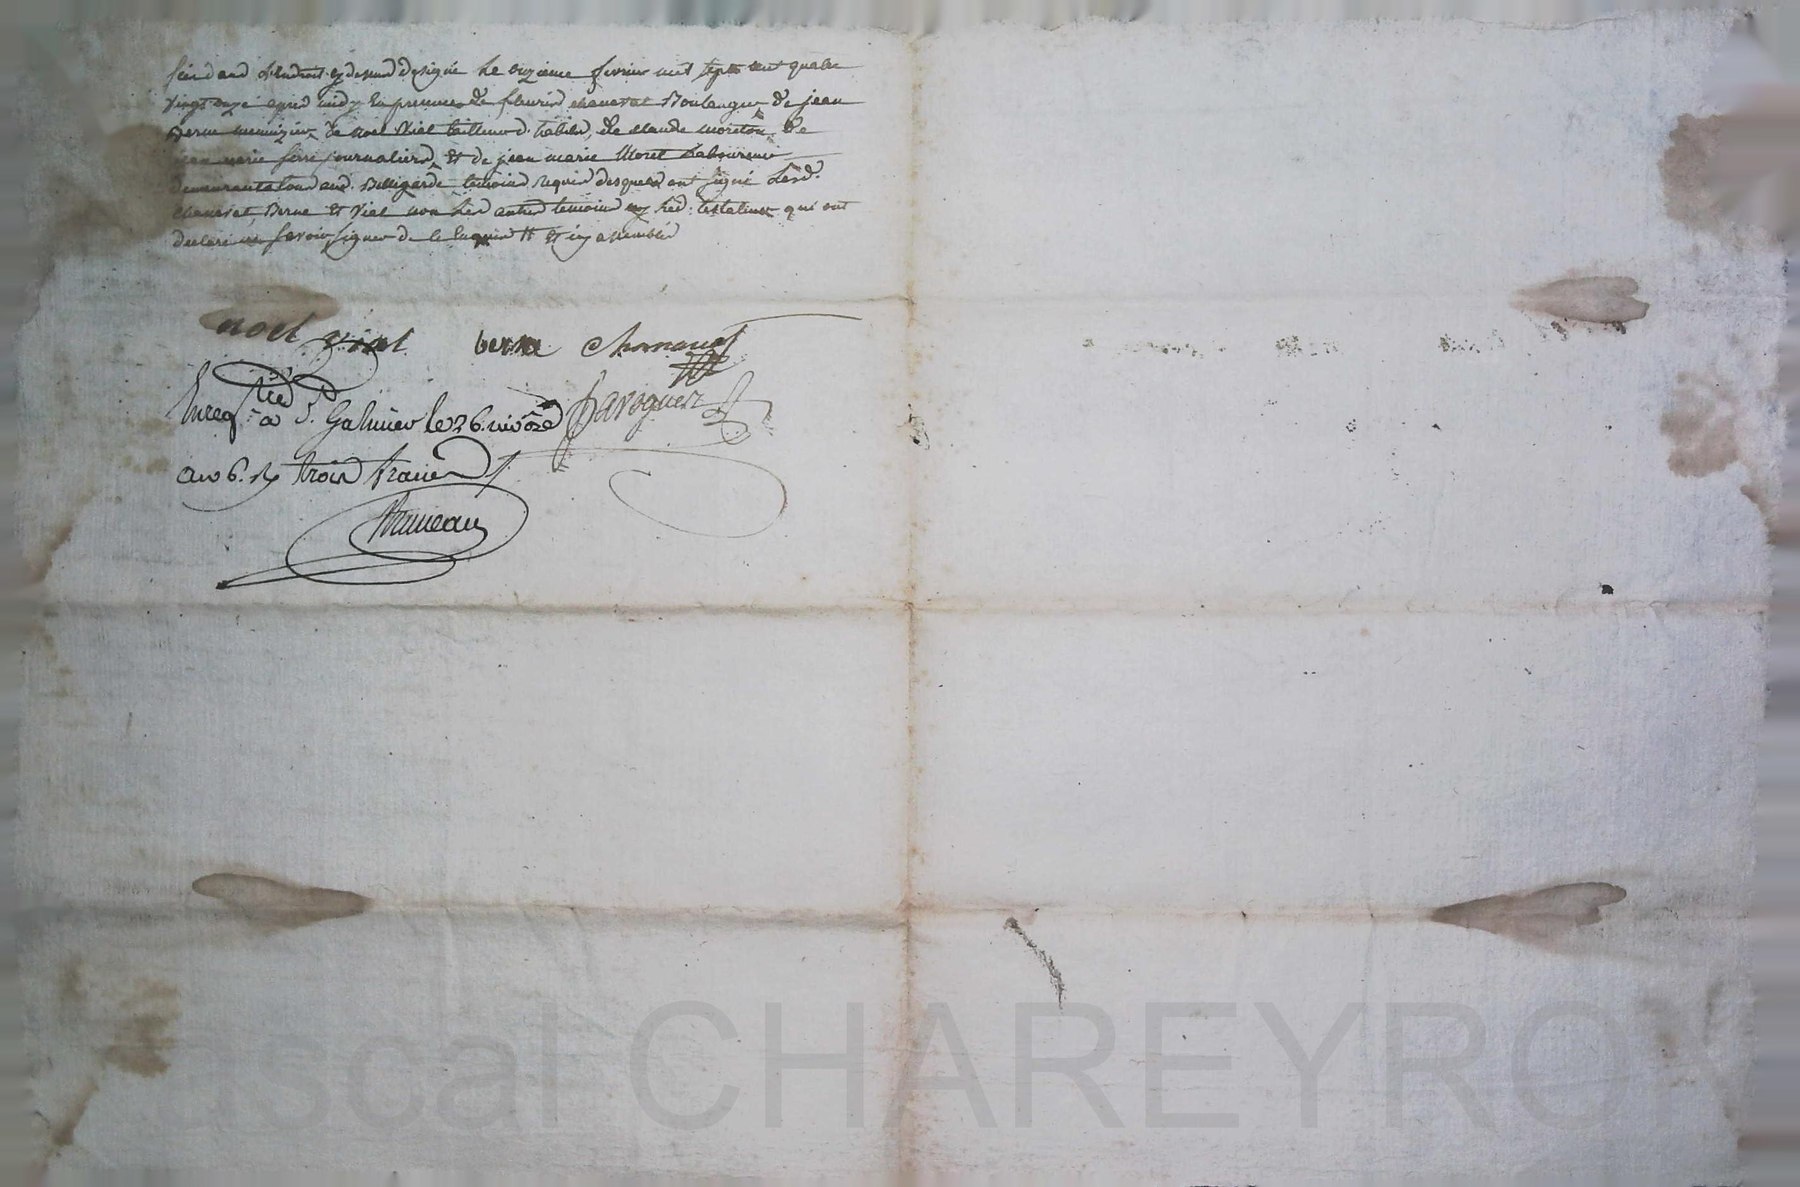 l'endroit cy dessus désigné le onzieme fevrier mil sept cent quatre
vingt onze apres midy En presence de fleurie chanavat Boulanger, de jean
Berne menuizier, de noel Vial tailleur d'habits, de claude moreton, de
jean marie ferre journaliers, et de jean marie Morel Laboureur
demeurants tous aud. Bellegarde temoins requis desquels ont signé Lesd.
chanavat, Berne et Vial non Les autres temoins ny Led. testateur qui ont
declaré ne savoir signer de ce Enquis et cy assemblés
noel vial berne Chanavat
Enreg.tré à St. Galmier le 26. nivôse
an 6. Rç trois francs
Bruneau
Pascal CHAREYRON